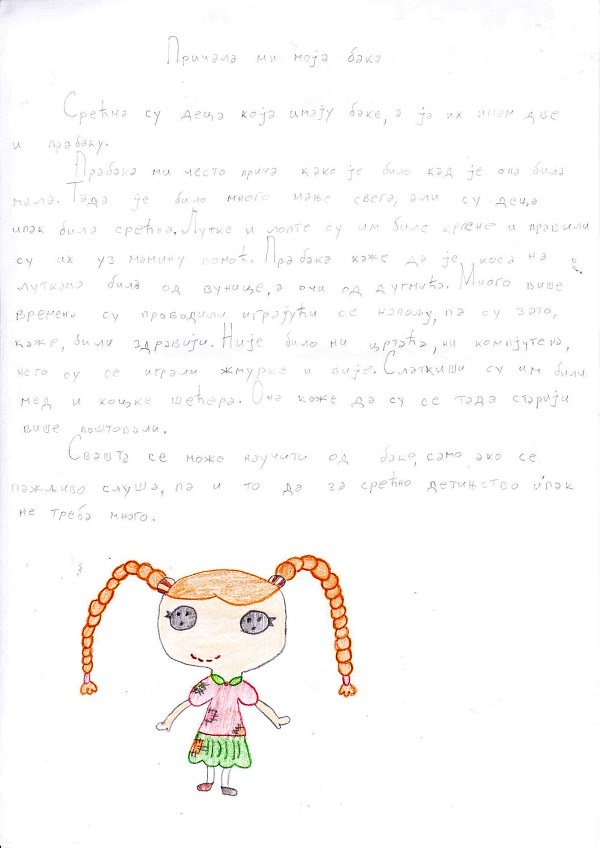 Причала ми моја бака
Срећна су деца која имају баке, а ја их имам две
и прабаку.
Прабака ми често прича како је било кад је она била
мала. Тада је било много мање свега, али су деца
ипак била срећна. Лутке и лопте су им биле крпене и правили
су их уз мамину помоћ. Прабака каже да је коса на
луткама била од вунице, а очи од дугмића. Много више
времена су проводили играјући се напољу, па су зато,
каже, били здравији. Није било ни цртаћа, ни компјутена,
него су се играли жмурке и вије. Слаткиши су им били
мед и коцке шећера. Она каже да су се тада старији
више поштовали.
Свашта се може научити од баке, само ако се
пажљиво слуша, па и то да за срећно детињство ипак
не треба много.